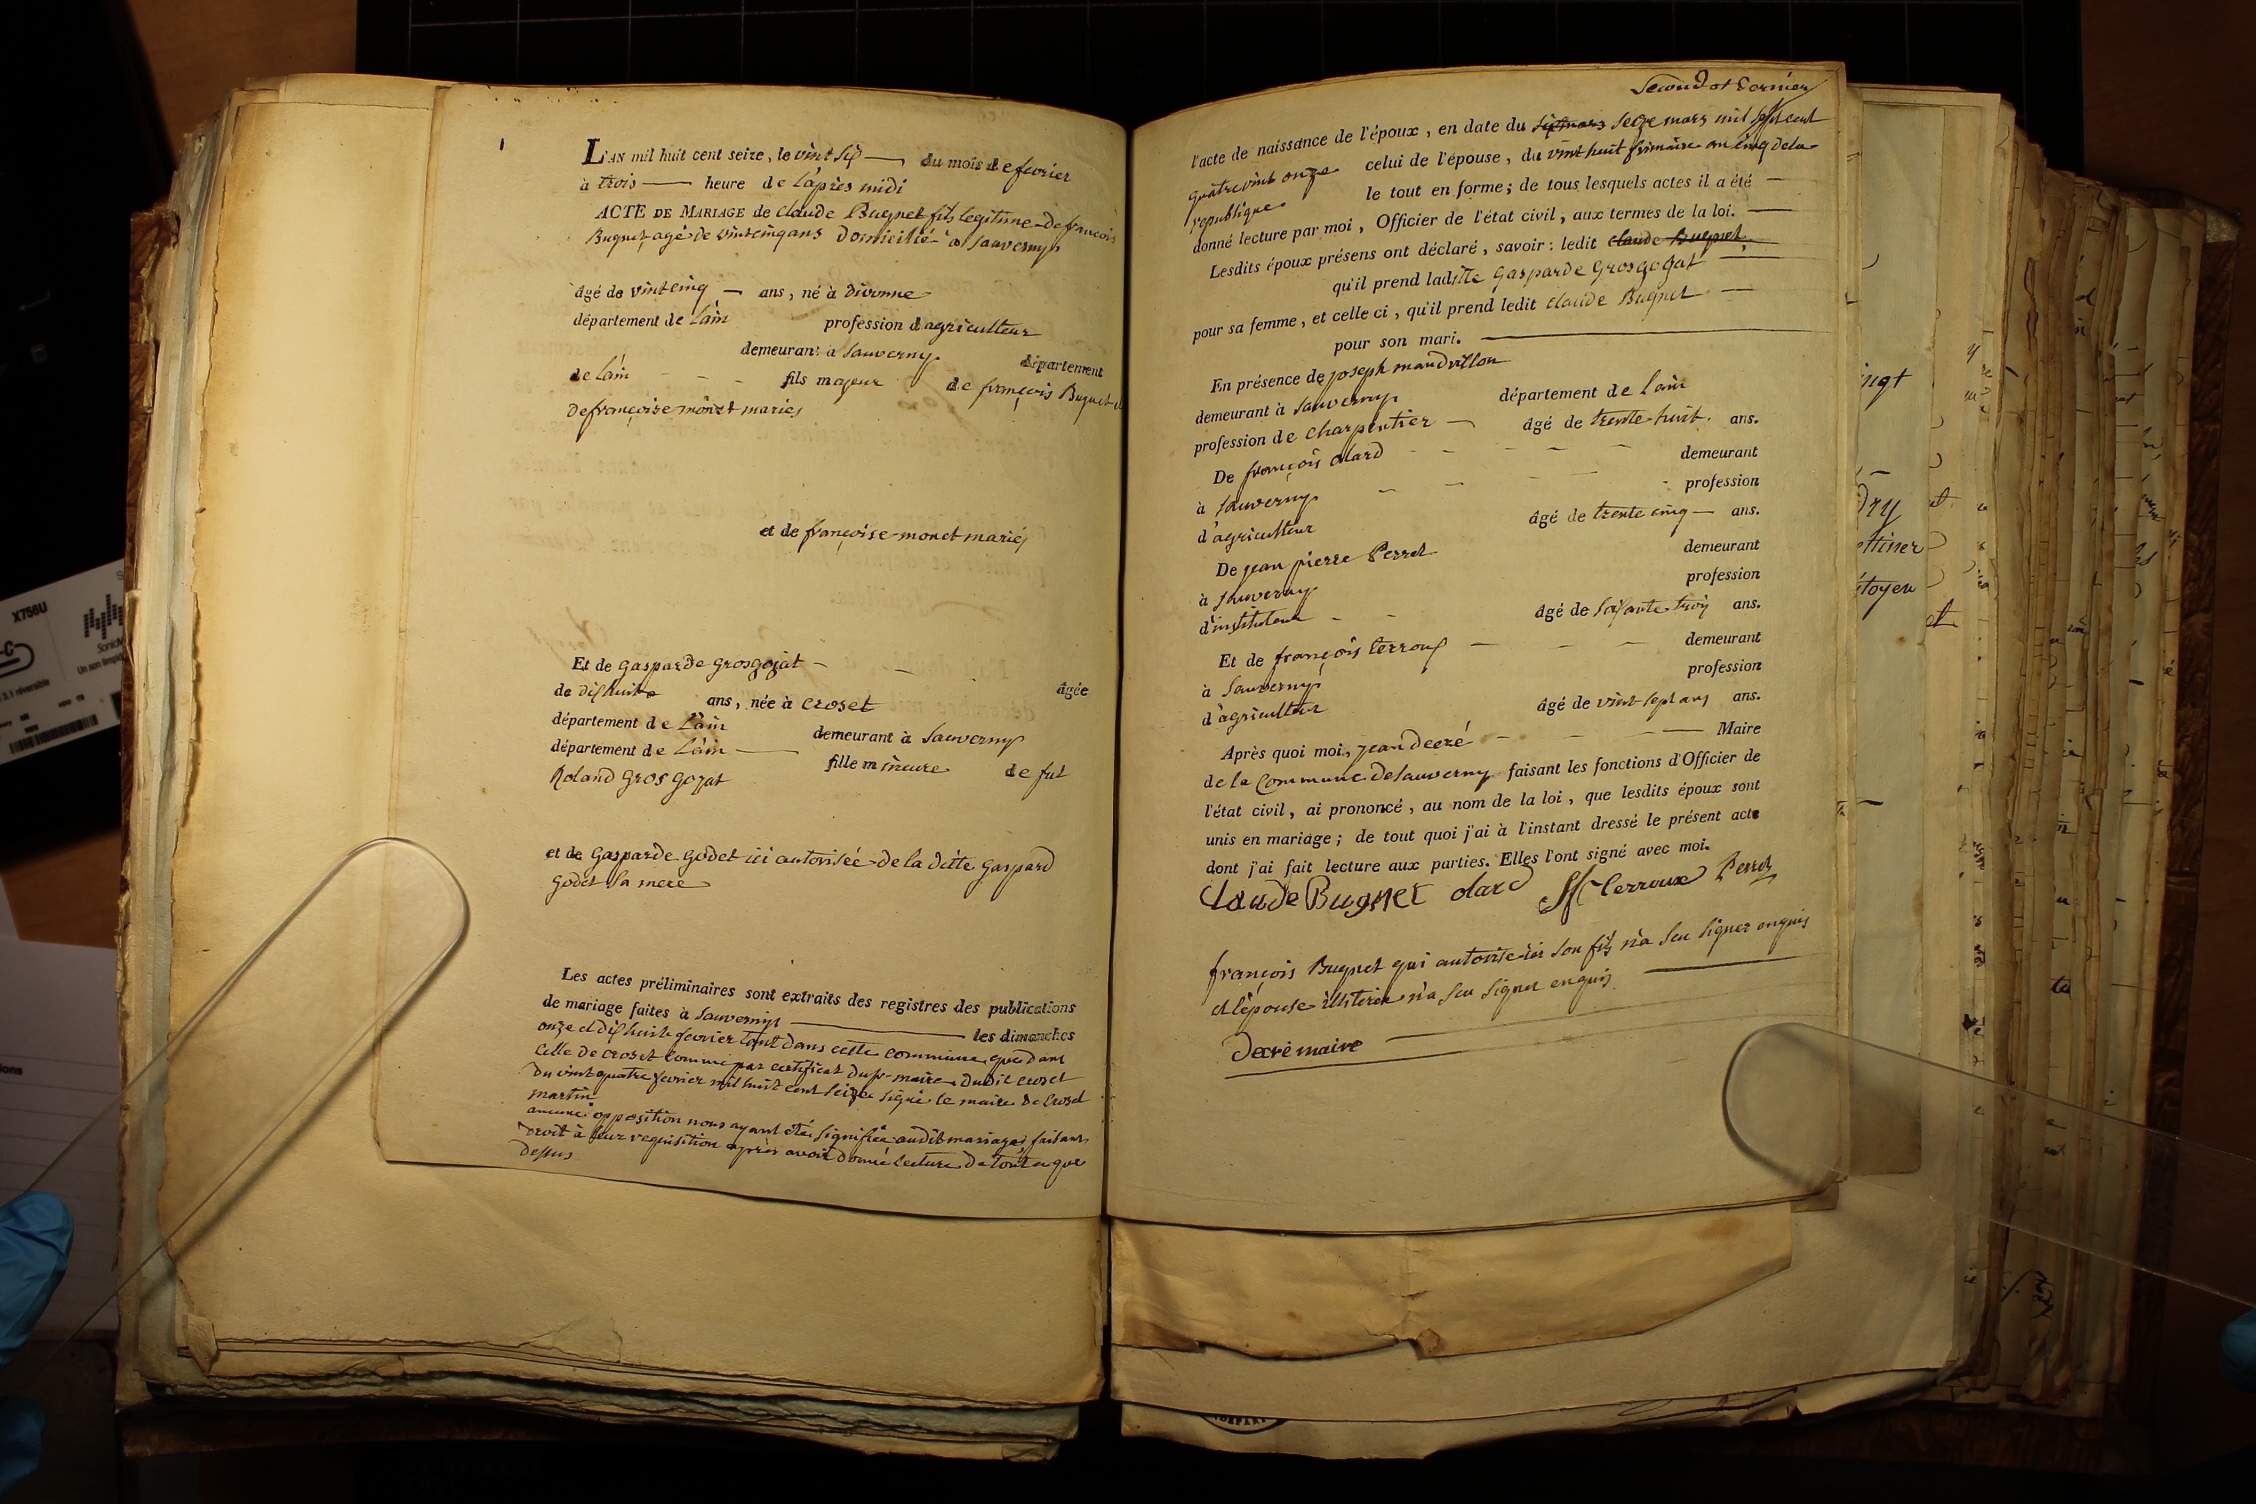 1
L'AN mil huit cent seize, le vint six du mois de fevrier
à trois heure de l'après midi
ACTE DE MARIAGE de claude Bugnet fils legitime de francois
Bugnet agé de vintcinq ans domicilié à Sauverny
âgé de vintcinq ans, né à divonne
département de l'ain profession d'agriculteur
demeurant à Sauverny département
de l'ain fils majeur de françois Bugnet et
de françoise monet mariés
et de françoise monet mariés
Et de gasparde grosgojat âgée
de dixhuit ans, née à croset
département de l'ain demeurant à Sauverny
département de l'ain fille mineure de fut
Roland gros gojat
et de gasparde godet ici autorisée de la ditte gaspard
godet sa mere
Les actes préliminaires sont extraits des registres des publications
de mariage faites à Sauverny les dimanches
onze et dixhuit fevrier tant dans cette commune que dans
celle de croset comme par certificat du sr maire dudit croset
du vint quatre fevrier mil huit cent seize signé le maire de croset
martin
aucune opposition nous ayant été signifiée audit mariage, faisant
droit à leur requisition après avoir donné lecture de tout ce que
dessus
Second et dernier
l'acte de naissance de l'époux, en date du six mars seize mars mil sept cent
quatrevint onze celui de l'épouse, du vint huit frimaire an cinq de la
republique le tout en forme; de tous lesquels actes il a été
donné lecture par moi, Officier de l'état civil, aux termes de la loi.
Lesdits époux présens ont déclaré, savoir: ledit claude Bugnet,
qu'il prend laditte gasparde grosgojat
pour sa femme, et celle ci, qu'il prend ledit claude Bugnet
pour son mari.
En présence de joseph mandrillon
demeurant à Sauverny département de l'ain
profession de charpentier âgé de trente huit ans.
De françois olard demeurant
à Sauverny profession
d'agriculteur âgé de trente cinq ans.
De jean pierre Perret demeurant
à Sauverny profession
d'instituteur âgé de soixante trois ans.
Et de françois terroux demeurant
à Sauverny profession
d'agriculteur âgé de vint sept ans ans.
Après quoi moi, jean decré Maire
de la commune de Sauverny faisant les fonctions d'Officier de
l'état civil, ai prononcé, au nom de la loi, que lesdits époux sont
unis en mariage; de tout quoi j'ai à l'instant dressé le présent acte
dont j'ai fait lecture aux parties. Elles l'ont signé avec moi.
Claude Bugnet olard terroux Perret
françois Bugnet qui autorise ici son fils n'a seu signer enquis
et l'épouse illiterée n'a seu signer enquis
Decré maire
X756U